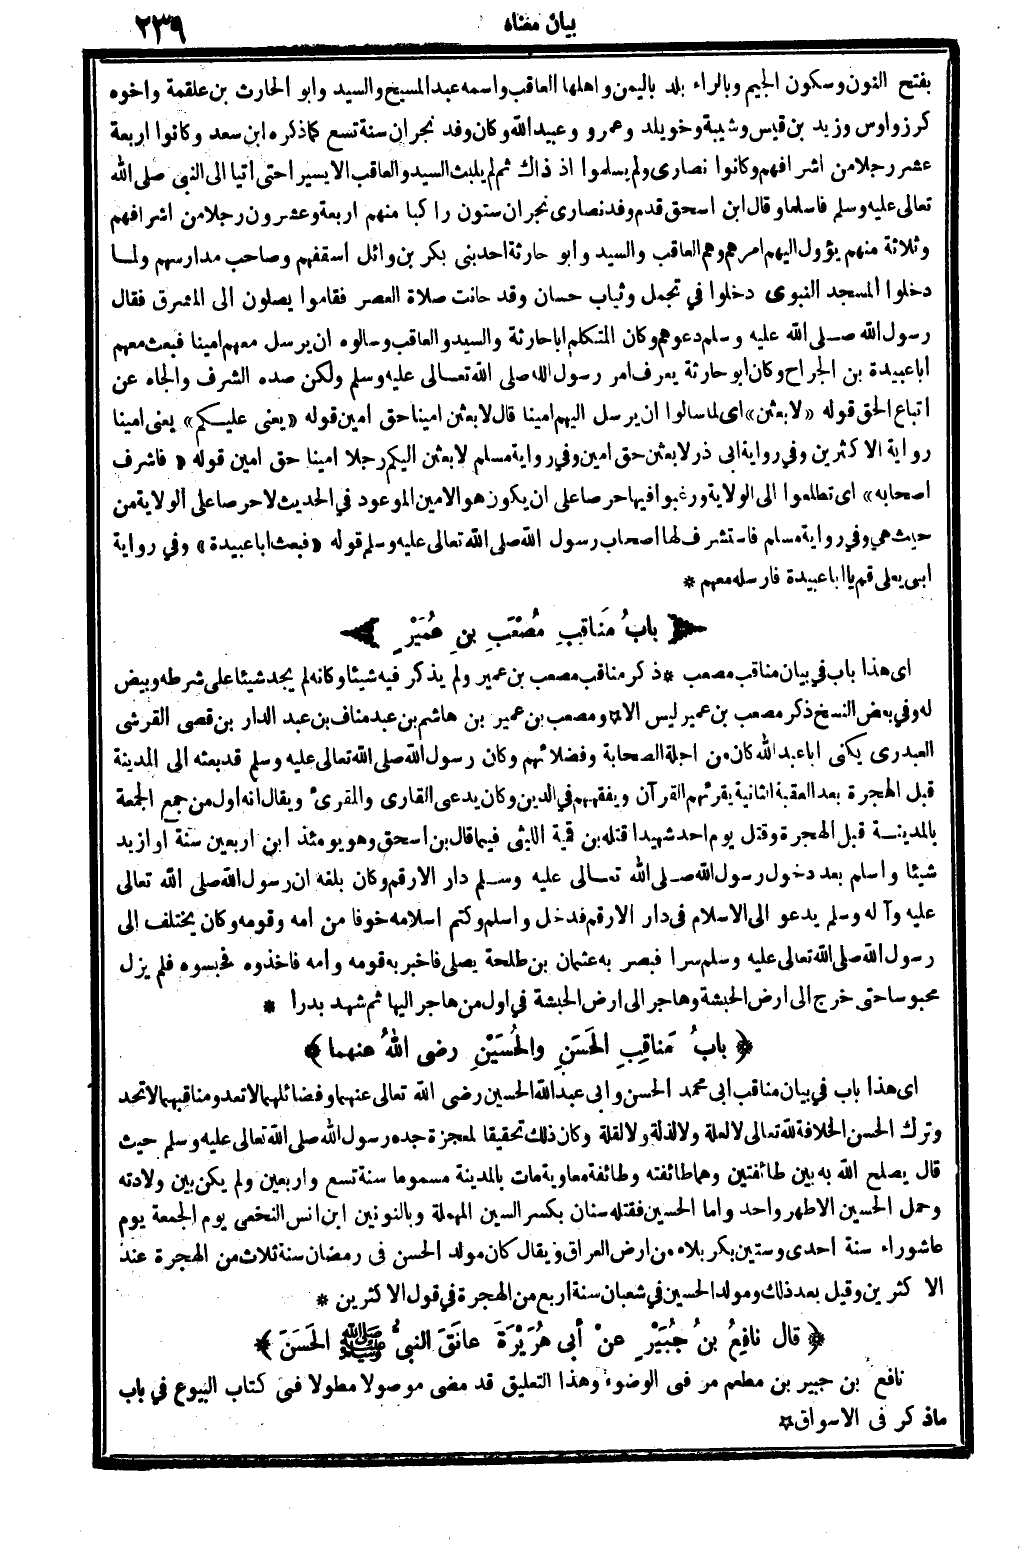 بيان معناه
٢٣٩
بفتح النون وسكون الجيم وبالراء بلد باليمن واهلها العاقب واسمه عبد المسيح والسيد وابو الحارث بن علقمة واخوه
كرز واوس وزيد بن قيس وشيبة وخويلد وعمرو وعبيد الله وكان وفد نجران سنة تسع كما ذكره ابن سعد وكانوا اربعة
عشر رجلا من اشرافهم وكانوا نصارى ولم يسلموا اذ ذاك ثم لم يلبث السيد والعاقب الا يسيرا حتى أتيا الى النبى صلى الله
تعالى عليه وسلم فاسلما وقال ابن اسحق قدم وفد نصارى نجران ستون راكبا منهم اربعة وعشرون رجلا من اشرافهم
وثلاثة منهم يؤول اليهم امرهم وهم العاقب والسيد وأبو حارثة احد بنى بكر بن وائل أسقفهم وصاحب مدارسهم ولما
دخلوا المسجد النبوى دخلوا في تجمل وثياب حسان وقد حانت صلاة العصر فقاموا يصلون الى المشرق فقال
رسول الله صلى الله عليه وسلم دعوهم وكان المتكلم ابا حارثة والسيد والعاقب وسالوه ان يرسل معهم امينا فبعث معهم
أبا عبيدة بن الجراح وكان ابو حارثة يعرف امر رسول الله صلى الله تعالى عليه وسلم ولكن صده الشرف والجاه عن
اتباع الحق قوله «لابعثن» اى لما سالوا ان يرسل اليهم امينا قال لابعثن امينا حق امين قوله «يعنى عليكم» يعنى امينا
رواية الاكثرين وفي رواية ابى ذر لابعثن حق امين وفي رواية مسلم لابعثن اليكم رجلا امينا حق امين قوله «فاشرف
اصحابه» اى تطلعوا الى الولاية ورغبوا فيها حرصا على ان يكون هو الامين الموعود في الحديث لا حرصا على الولاية من
حيث هي وفي رواية مسلم فاستشرف لها اصحاب رسول الله صلى الله تعالى عليه وسلم قوله «فبعث ابا عبيدة» وفي رواية
ابى يعلى قم يا ابا عبيدة فارسله معهم *
باب مَنَاقِبِ مُصْعَبِ بنِ عُمَيْرٍ
اى هذا باب في بيان مناقب مصعب * ذكر مناقب مصعب بن عمير ولم يذكر فيه شيئا وكانه لم يجد شيئا على شرطه وبيض
له وفي بعض النسخ ذكر مصعب بن عمير ليس الا * ومصعب بن عمير بن هاشم بن عبد مناف بن عبد الدار بن قصى القرشى
العبدرى يكنى ابا عبد الله كان من اجلة الصحابة وفضلائهم وكان رسول الله صلى الله تعالى عليه وسلم قد بعثه الى المدينة
قبل الهجرة بعد العقبة الثانية يقرئهم القرآن ويفقههم في الدين وكان يدعى القارى والمقرئ ويقال انه اول من جمع الجمعة
بالمدينة قبل الهجرة وقتل يوم احد شهيدا قتله بن قمية الليثى فيما قال بن اسحق وهو يومئذ ابن اربعين سنة او ازيد
شيئا وأسلم بعد دخول رسول الله صلى الله تعالى عليه وسلم دار الارقم وكان بلغه ان رسول الله صلى الله تعالى
عليه وآله وسلم يدعو الى الاسلام فى دار الارقم فدخل واسلم وكتم اسلامه خوفا من امه وقومه وكان يختلف الى
رسول الله صلى الله تعالى عليه وسلم سرا فبصر به عثمان بن طلحة يصلى فاخبر به قومه وأمه فاخذوه فحبسوه فلم يزل
محبوسا حتى خرج الى ارض الحبشة وهاجر الى ارض الحبشة في اول من هاجر اليها ثم شهد بدرا *
﴿باب مَناقِبِ الحَسَنِ والحُسَيْنِ رضى اللهُ عنهما﴾
اى هذا باب في بيان مناقب ابى محمد الحسن وابى عبد الله الحسين رضى الله تعالى عنهما وفضائلهما لا تعد ومناقبهما لا تحد
وترك الحسن الخلافة لله تعالى لا لعلة ولا لذلة ولا لقلة وكان ذلك تحقيقا لمعجزة جده رسول الله صلى الله تعالى عليه وسلم حيث
قال يصلح الله به بين طائفتين وهما طائفته وطائفة معاوية مات بالمدينة مسموما سنة تسع واربعين ولم يكن بين ولادته
وحمل الحسين الا طهر واحد واما الحسين فقتله سنان بكسر السين المهملة وبالنونين ابن انس النخعى يوم الجمعة يوم
عاشوراء سنة احدى وستين بكربلاء من ارض العراق ويقال كان مولد الحسن فى رمضان سنة ثلاث من الهجرة عند
الاكثرين وقيل بعد ذلك ومولد الحسين في شعبان سنة اربع من الهجرة في قول الاكثرين *
﴿قال نافِعُ بنُ جُبَيْرٍ عنْ أبى هُرَيْرَةَ عانَقَ النبىُّ ﷺ الحَسَنَ﴾
نافع بن جبير بن مطعم مر فى الوضوء وهذا التعليق قد مضى موصولا مطولا فى كتاب البيوع في باب
ماذكر فى الاسواق *